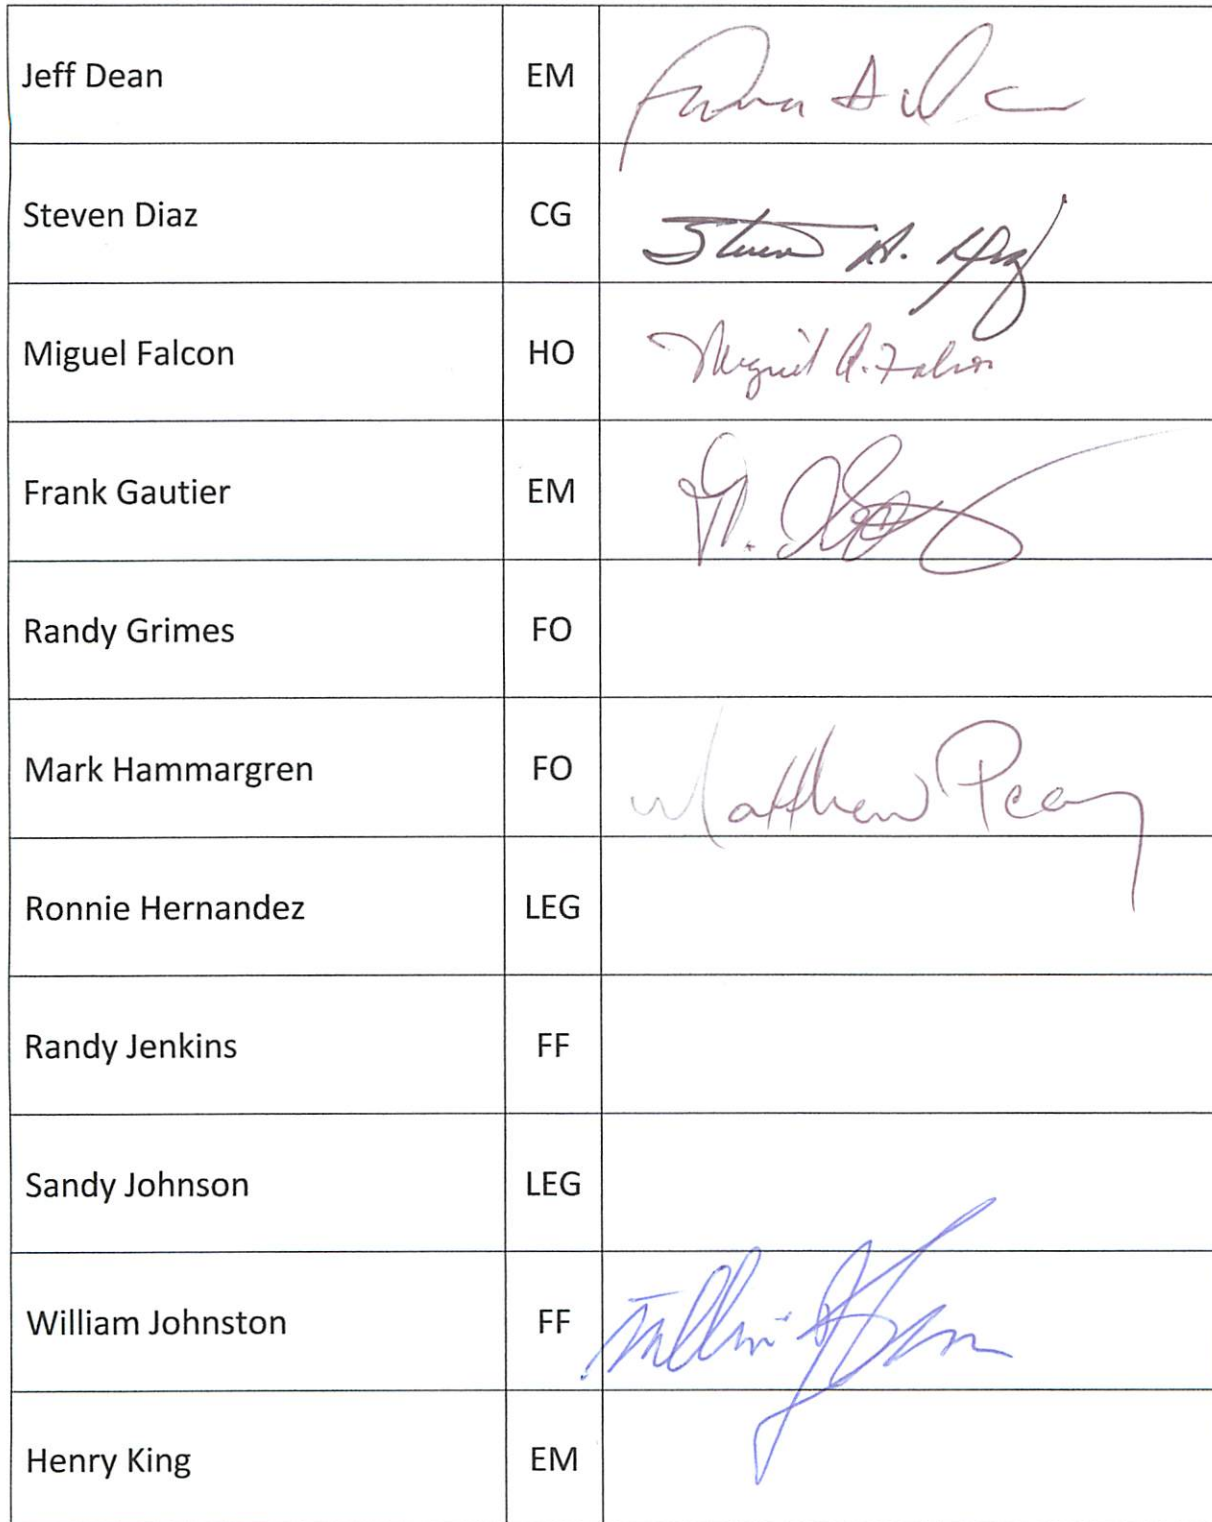 Jeff Dean EM
Steven Diaz CG Steven A. Diaz
Miguel Falcon HO Miguel A. Falcon
Frank Gautier EM
Randy Grimes FO
Mark Hammargren FO Matthew Peay
Ronnie Hernandez LEG
Randy Jenkins FF
Sandy Johnson LEG
William Johnston FF
Henry King EM